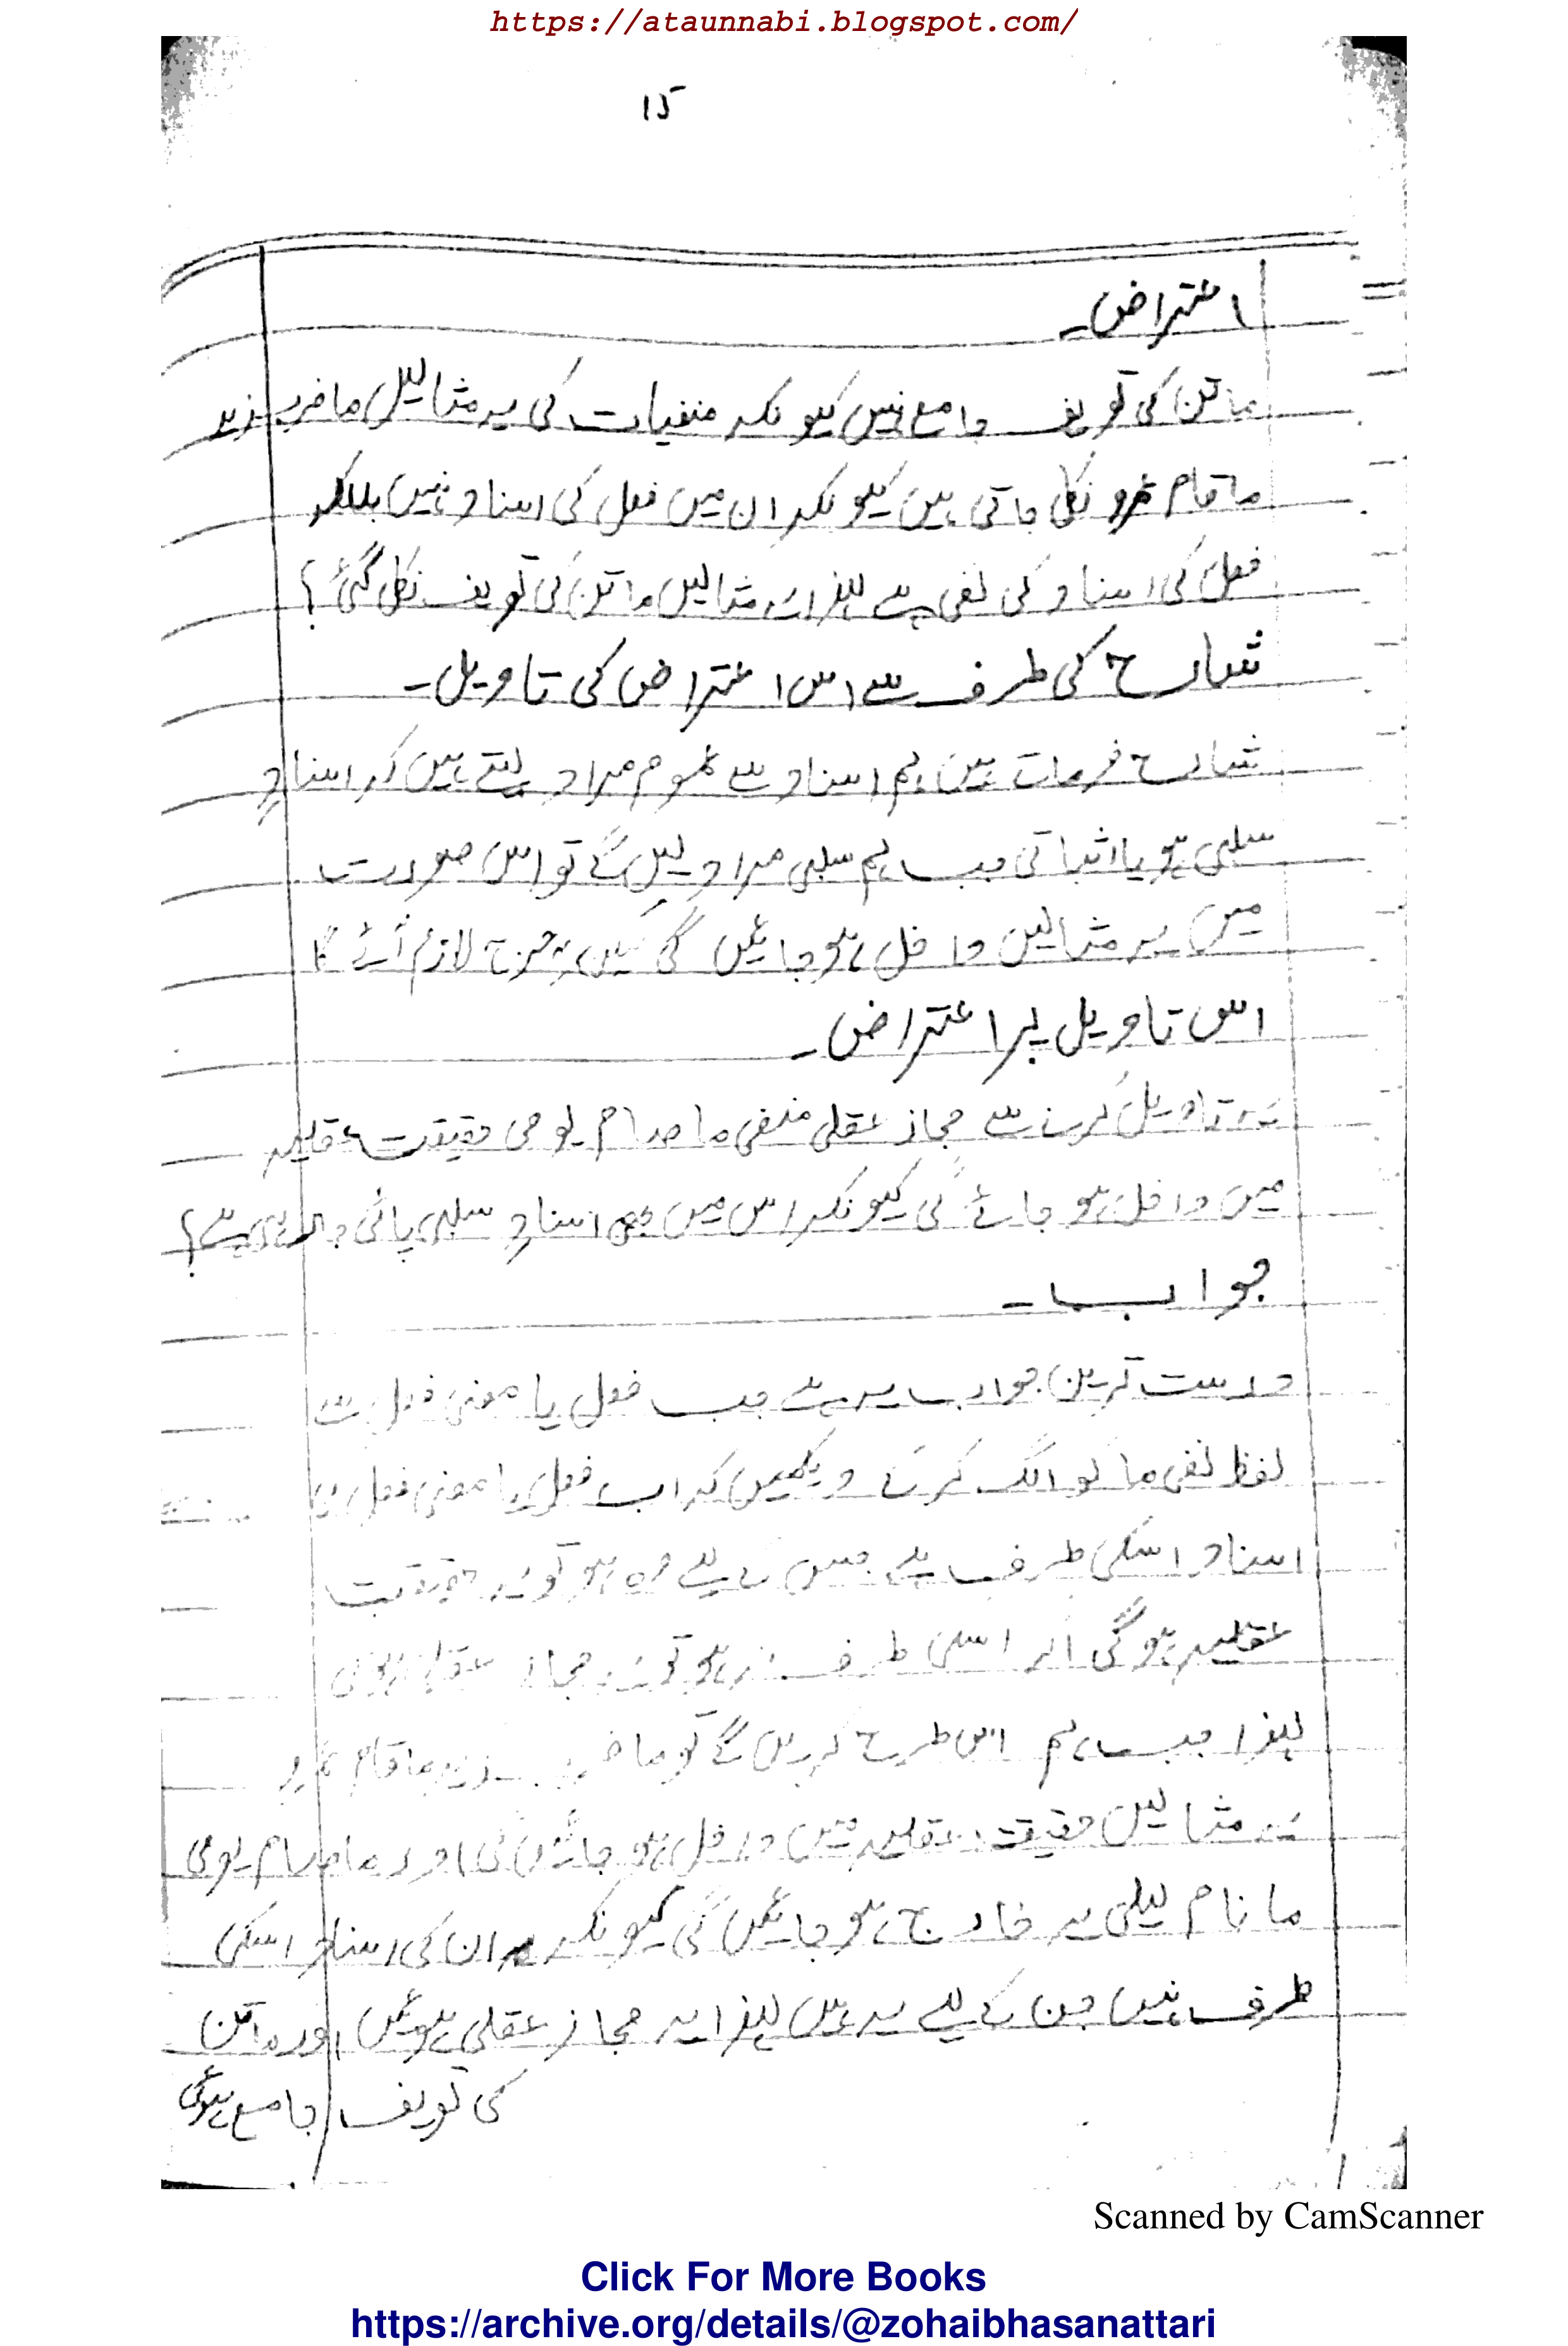 https://ataunnabi.blogspot.com/
۱۵
اعتراض۔
ماتن کی تعریف جامع نہیں کیونکہ منفیات کی یہ مثالیں ما ضرب زید
ما قام عمرو نکل جاتی ہیں کیونکہ ان میں فعل کی اسناد نہیں بلکہ
فعل کی اسناد کی نفی ہے لہذا یہ مثالیں ماتن کی تعریف نکل گئی؟
شارح کی طرف سے اس اعتراض کی تاویل۔
شارح فرمات ہیں ہم اسناد سے عموم مراد لیتے ہیں کہ اسنادِ
سلبی ہو یا اثباتی جب ہم سلبی مراد لیں گے تو اس صورت
میں یہ مثالیں داخل ہو جائیں گی حرج لازم آئے گا
اس تاویل پر اعتراض۔
یہ تاویل کرنے سے مجاز عقلی منفی ما صام یومی حقیقت عقلیہ
میں داخل ہو جائے گی کیونکہ اس میں بھی اسنادِ سلبی پائی جا رہی ہے؟
جواب۔
درست ترین جواب یہ ہے جب فعل یا معنی فعل سے
لفظ نفی ما کو الگ کرکے دیکھیں کہ اب فعل یا معنی فعل کی
اسناد اسکی طرف ہے جس کے لیے وہ ہو تو یہ حقیقت
عقلیہ ہوگی اگر اسکی طرف نہ ہو تو یہ مجاز عقلی ہوگی
لہذا جب ہم اس طرح کریں گے تو ما ضرب زید ما قام عمرو
یہ مثالیں حقیقت عقلیہ میں داخل ہو جائیں گی اور ما صام یومی
ما نام لیلی یہ خارج ہو جائیں گی کیونکہ ان کی اسناد اسکی
طرف نہیں جن کے لیے یہ ہیں لہذا یہ مجاز عقلی ہوئیں اور ماتن
کی تعریف جامع ہوگی
Scanned by CamScanner
Click For More Books
https://archive.org/details/@zohaibhasanattari